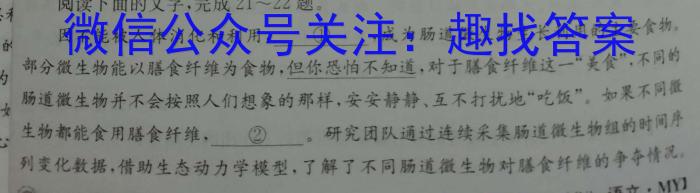 阅读下面的文字，完成21～22题。
微信公众号关注：趣找答案
部分微生物能以膳食纤维为食物，但你恐怕不知道，对于膳食纤维这一“美食”，不同的
肠道微生物并不会按照人们想象的那样，安安静静、互不打扰地“吃饭”。如果不同微
生物都能食用膳食纤维，②。研究团队通过连续采集肠道微生物组的时间序
列变化数据，借助生态动力学模型，了解了不同肠道微生物对膳食纤维的争夺情况。
语文·MYJ